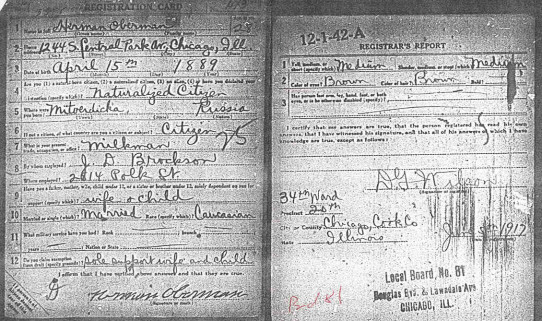 REGISTRATION CARD
1 Name in full Herman Oberman
2 Home 1244 S. Central Park Av, Chicago, Ill.
3 Date of birth April 15th 1889
4 Naturalized Citizen
5 Mitverdicka Russia
6 If not a citizen, of what country are you a citizen or subject? Citizen
7 What is your present trade, occupation, or office? Milkman
8 By whom employed? J. D. Brockson
Where employed? 2614 Polk St
9 Have you a father, mother, wife, child under 12, or a sister or brother under 12, solely dependent on you for support (specify which)? wife & child
10 Married or single (which)? Married Race (specify which)? Caucasian
11 What military service have you had? Rank branch
years Nation or State
12 Do you claim exemption from draft (specify grounds)? Sole support wife and child
I affirm that I have verified above answers and that they are true.
Herman Oberman
12-1-42-A
REGISTRAR'S REPORT
1 Tall, medium, or short (specify which)? Medium Slender, medium, or stout (which)? Medium
2 Color of eyes? Brown Color of hair? Brown Bald?
3 Has person lost arm, leg, hand, foot, or both eyes, or is he otherwise disabled (specify)?
I certify that my answers are true, that the person registered has read his own
answers, that I have witnessed his signature, and that all of his answers of which I have
knowledge are true, except as follows:
34th Ward
Precinct 20th
City or County Chicago, Cook Co
State Illinois
June 5th 1917
Local Board, No. 81
Douglas Bvd. & Lawndale Ave
CHICAGO, ILL.
Bd 81